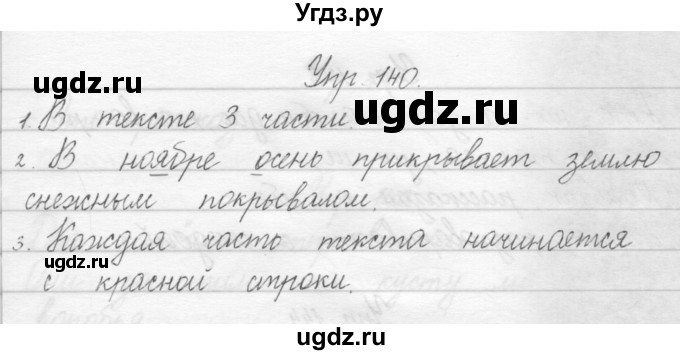 Угдз.ру
Упр. 140.
ugdz.ru
ugdz.ru
1. В тексте 3 части.
2. В ноябре осень прикрывает землю
снежным покрывалом.
3. Каждая часть текста начинается
ugdz.ru
с красной строки.
ugdz.ru
ugdz.ru